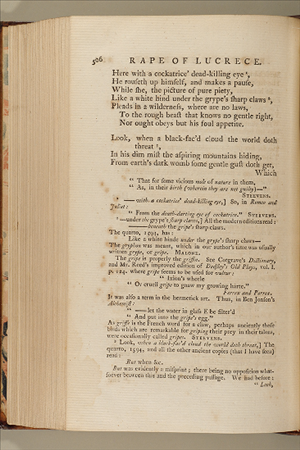 506 RAPE OF LUCRECE.
Here with a cockatrice' dead-killing eye ²,
He rouseth up himself, and makes a pause,
While she, the picture of pure piety,
Like a white hind under the grype's sharp claws ³,
Pleads in a wilderness, where are no laws,
To the rough beast that knows no gentle right,
Nor ought obeys but his foul appetite.
Look, when a black-fac'd cloud the world doth
threat ⁴,
In his dim mist the aspiring mountains hiding,
From earth's dark womb some gentle gust doth get,
Which
" That for some vicious mole of nature in them,
" As, in their birth (wherein they are not guilty)—"
STEEVENS.
— with a cockatrice' dead-killing eye,] So, in Romeo and
Juliet:
" From the death-darting eye of cockatrice." STEEVENS.
— under the grype's sharp claws,] All the modern editions read:
—— beneath the gripe's sharp claws.
The quarto, 1594, has:
Like a white hinde under the grype's sharp claws—
The gryphon was meant, which in our author's time was usually
written grype, or gripe. MALONE.
The gripe is properly the griffin. See Cotgrave's Dictionary,
and Mr. Reed's improved edition of Dodsley's Old Plays, vol. I.
p. 124. where gripe seems to be used for vultur:
" Ixion's wheele
" Or cruell gripe to gnaw my growing harte."
Ferrex and Porrex.
It was also a term in the hermetick art. Thus, in Ben Jonson's
Alchemist:
" —— let the water in glass E be filter'd
" And put into the gripe's egg."
As griffe is the French word for a claw, perhaps anciently those
birds which are remarkable for griping their prey in their talons,
were occasionally called gripes. STEEVENS.
⁴ Look, when a black-fac'd cloud the world doth threat,] The
quarto, 1594, and all the other ancient copies (that I have seen)
read:
But when &c.
But was evidently a misprint; there being no opposition what-
soever between this and the preceding passage. We had before:
" Look,